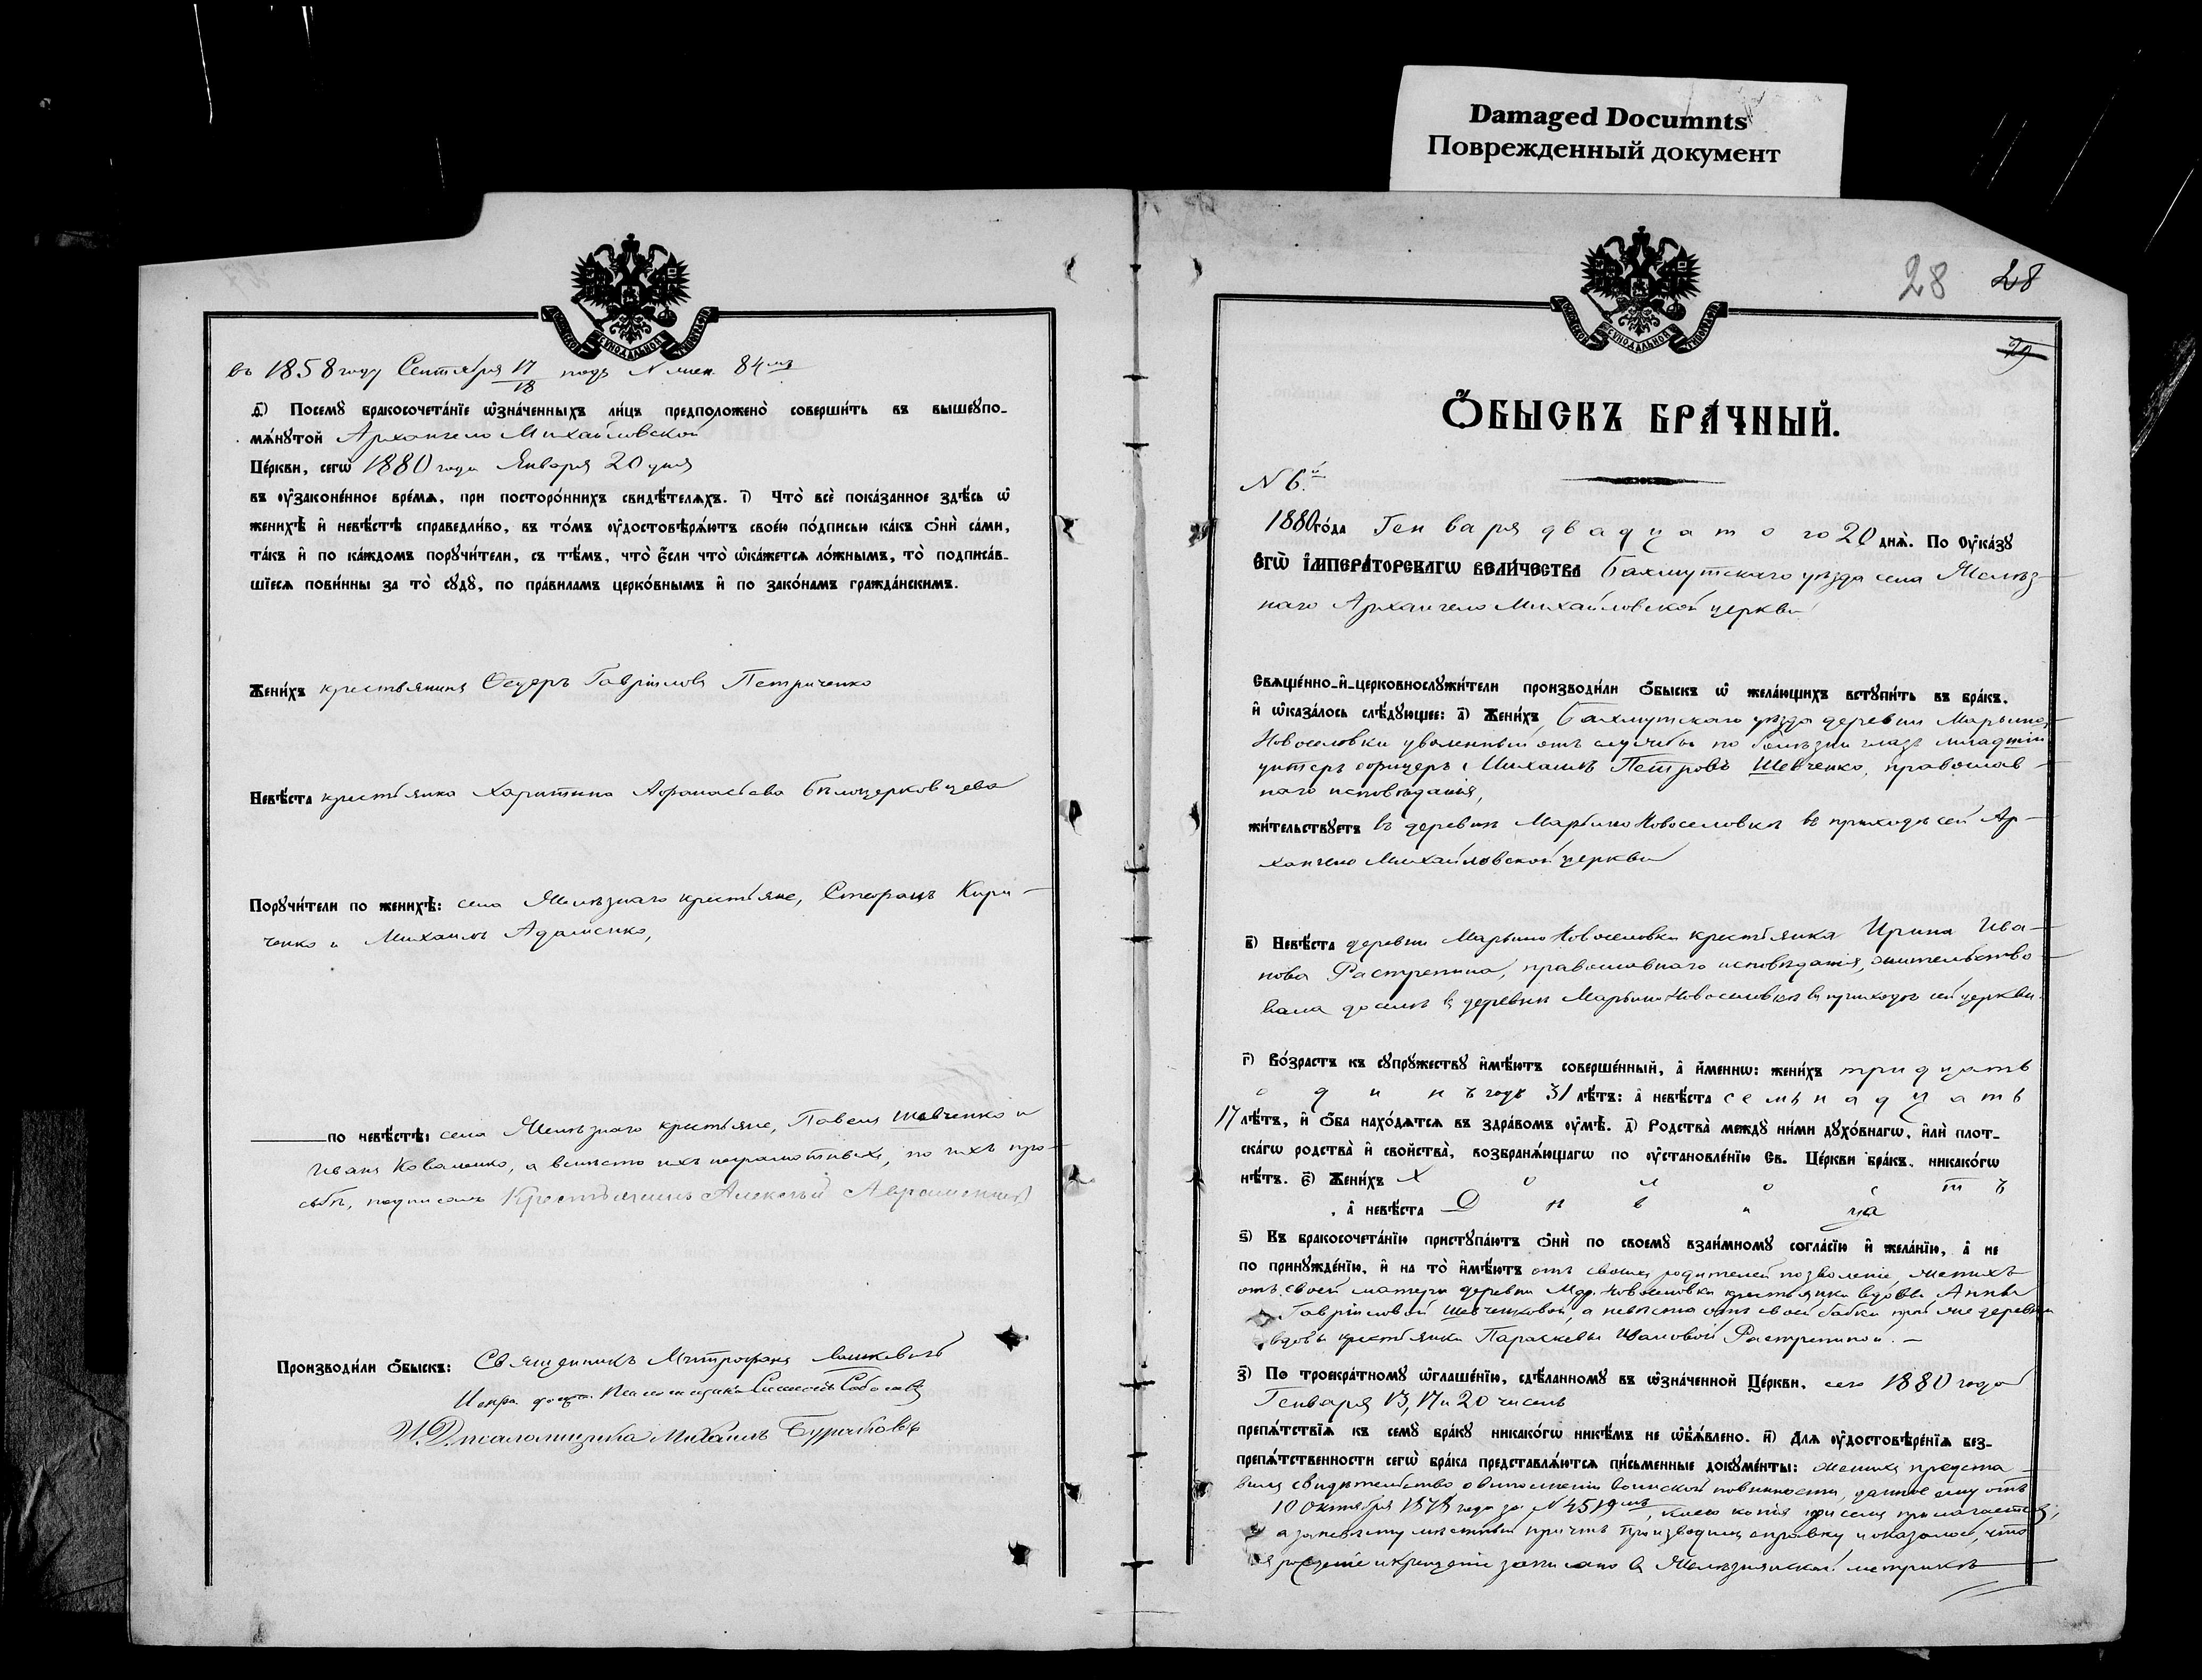 Damaged Documnts
Поврежденный документ
въ 1858 году Сентября 17/18 подъ N 84мъ
Посемꙋ бракосочетанїе ѡзначенныхъ лицъ предположено совершить въ вышеꙋпо-
мянꙋтой Архангело Михайловской
Церкви, сегѡ 1880 года Января 20 дня
въ ꙋзаконенное время, при постороннихъ свидѣтеляхъ. і) Что все показанное здѣсь ѡ
женихѣ и невѣстѣ справедливо, въ томъ ꙋдостовѣряютъ своею подписью какъ ѻни сами,
такъ и по каждомъ порꙋчители, съ тѣмъ, что если что ѡкажется ложнымъ, то подписав-
шїеся повинны за то сꙋдꙋ, по правиламъ церковнымъ и по законамъ гражданскимъ.
Женихъ крестьянинъ Ѳедоръ Гавріиловъ Петриченко
Невѣста крестьянка Харитина Афанасьева Бѣлоцерковцева
Порꙋчители по женихѣ: села Желѣзнаго крестьяне, Стефанъ Кири-
ченко и Михаилъ Адаменко,
по невѣстѣ: села Желѣзнаго крестьяне, Павелъ Шевченко и
Иванъ Коваленко, а вмѣсто ихъ неграмотныхъ, по ихъ про-
сьбѣ, подписалъ Крестьянинъ Алексѣй Авраменко
Производили ѻбыскъ: Священникъ Митрофанъ
И. Д. псаломщика Михаилъ
28 28
29
Ѻбыскъ брачный.
N 6й
1880 года Генваря двадцатого 20 дня. По Оуказꙋ
Егѡ Императорскагѡ Величества Бахмутскаго уѣзда села Желѣз-
наго Архангело Михайловской церкви
Священно-и-церковнослꙋжители производили ѻбыскъ ѡ желающихъ встꙋпить въ бракъ.
и ѡказалось слѣдꙋющее: а) Женихъ Бахмутскаго уѣзда деревни Марьино-
Новоселовки уволенный отъ службы по болѣзни глазъ младшій
унтеръ офицеръ Михаилъ Петровъ Шевченко, православ-
наго исповѣданія,
жительствꙋетъ въ деревнѣ Марьино Новоселовкѣ въ приходѣ сей Ар-
хангело Михайловской церкви
в) Невѣста деревни Марьино Новоселовки крестьянка Ирина Ива-
нова Растрепина, православнаго исповѣданія, жительство-
вала доселѣ въ деревнѣ Марьино Новоселовкѣ въ приходѣ сей церкви.
г) Возрастъ къ сꙋпрꙋжествꙋ имѣютъ совершенный, а именнѡ: женихъ тридцать
одинъ годъ 31 лѣтъ: а невѣста семьнадцать
17 лѣтъ, и ѻба находятся въ здравомъ ꙋмѣ. д) Родства междꙋ ними дꙋховнагѡ, или плот-
скагѡ родства и свойства, возбраняющагѡ по ꙋстановленїю Св. Церкви бракъ, никакогѡ
нѣтъ. є) Женихъ Холостъ
, а невѣста Дѣвица
ѕ) Къ бракосочетанїю пристꙋпаютъ ѻни по своемꙋ взаимномꙋ согласїю и желанїю, а не
по принꙋжденїю, и на то имѣютъ отъ своихъ родителей позволеніе, женихъ
отъ своей матери деревни Мар. Новоселовки крестьянки вдовы Анны
Гавріиловой Шевченковой, а невѣста отъ своей бабки той же деревни
вдовы крестьянки Параскевы Ивановой Растрепиной. –
з) По троекратномꙋ ѡглашенїю, сдѣланномꙋ въ ѡзначенной Церкви, сего 1880 года
Генваря 13, 17 и 20 чиселъ
препятствїя къ семꙋ бракꙋ никакогѡ никѣмъ не ѡб̾явлено. и) Для ꙋдостовѣренїя без-
препятственности сегѡ брака представляются письменные докꙋменты: женихъ предста-
вилъ свидѣтельство о выполненіи воинской повинности, данное ему отъ
10 Октября 1878 года за N 4519мъ, коего копія при семъ прилагается,
а за невѣсту мѣстный причтъ производилъ справку и оказалось, что
ея рожденіе и крещеніе записано въ Желѣзнянской метрикѣ